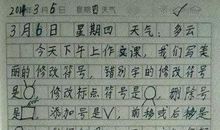 2014年3月6日
3月6日 星期四 天气：多云
今天下午上作文课，我们写美
丽的修改符号，错别字的修改符号
是○，修改标点符号是，删除号
是，添加号是∨，前移或后移是